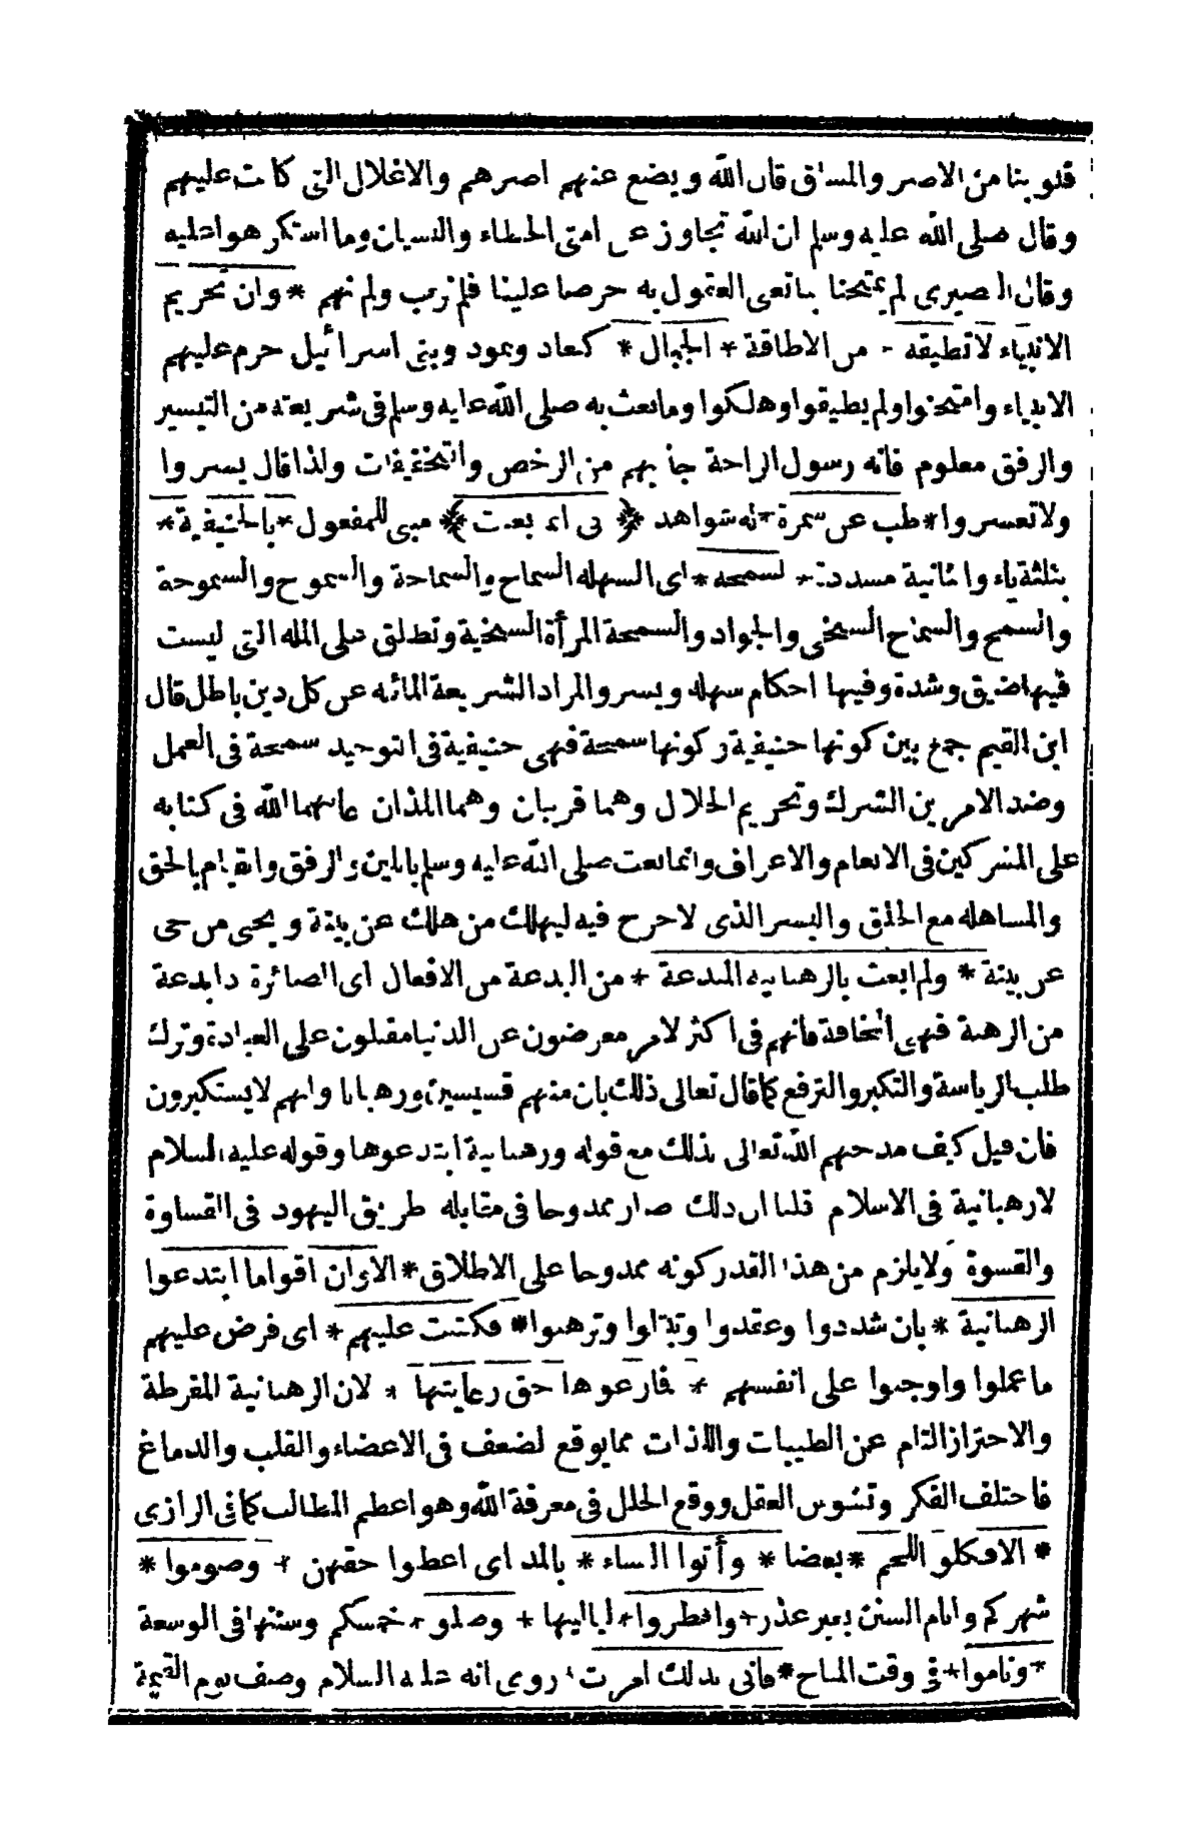 قلوبنا من الاصر والمشاق قال الله ويضع عنهم اصرهم والاغلال التى كانت عليهم
وقال صلى الله عليه وسلم ان الله تجاوز عن امتى الخطاء والنسيان وما استكرهوا عليه
وقال البوصيرى لم يمتحنا بما تعى العقول به حرصا علينا فلم نرتب ولم نهم * وان تحريم
الانبياء لا تطيقه - من الاطاقة * الجبال * كعاد وثمود وبنى اسرائيل حرم عليهم
الانبياء وامتحنوا ولم يطيقوا وهلكوا وما بعث به صلى الله عليه وسلم فى شريعته من التيسير
والرفق معلوم فانه رسول الراحة جاء بهم من الرخص والتخفيفات ولذا قال يسروا
ولا تعسروا * طب عن سمرة * له شواهد ﴿ نى انى بعثت ﴾ مبنى للمفعول * بالحنيفية *
بثلثة ياء والثانية مشددة * لسمحة * اى السهله السماح والسماحة والسموح والسموحة
والسمح والسماح السخى والجواد والسمحة المرأة السخية وتطلق على المله التى ليست
فيها ضيق وشدة وفيها احكام سهله ويسر والمراد الشريعة المائله عن كل دين باطل قال
ابن القيم جمع بين كونها حنيفية وكونها سمحة فهى حنيفية فى التوحيد سمحة فى العمل
وضد الامرين الشرك وتحريم الحلال وهما قرينان وهما اللذان عابهما الله فى كتابه
على المشركين فى الانعام والاعراف وانما بعث صلى الله عليه وسلم باللين والرفق والقيام بالحق
والمساهله مع الخلق واليسر الذى لا حرج فيه ليهلك من هلك عن بينة ويحيى من حى
عن بينة * ولم ابعث بالرهبانيه المبدعة * من البدعة من الافعال اى الصائرة ذا بدعة
من الرهبة فهى المخافة فانهم فى اكثر الامر معرضون عن الدنيا مقبلون على العبادة وترك
طلب الرياسة والتكبر والترفع كما قال تعالى ذلك بان منهم قسيسين ورهبانا وانهم لا يستكبرون
فان قيل كيف مدحهم الله تعالى بذلك مع قوله ورهبانية ابتدعوها وقوله عليه السلام
لا رهبانية فى الاسلام قلنا ان ذلك صار ممدوحا فى مقابله طريق اليهود فى القساوة
والقسوة ولا يلزم من هذا القدر كونه ممدوحا على الاطلاق * الا وان اقواما ابتدعوا
الرهبانية * بان شددوا وعقدوا وتبتلوا وترهبوا * فكتبت عليهم * اى فرض عليهم
ما عملوا واوجبوا على انفسهم * فما رعوها حق رعايتها * لان الرهبانية المفرطة
والاحتراز التام عن الطيبات واللذات مما يوقع لضعف فى الاعضاء والقلب والدماغ
فاختلف الفكر وتشوش العقل ووقع الخلل فى معرفة الله وهو اعظم المطالب كما فى الرازى
* الا فكلوا اللحم * بعضا * وأتوا النساء * بالمد اى اعطوا حقهن * وصوموا *
شهركم وايام السنن بغير عذر * وافطروا * لياليها * وصلوا * خمسكم وسننها فى الوسعة
* وناموا * فى وقت المباح * فانى بذلك امرت * روى انه عليه السلام وصف يوم القيمة